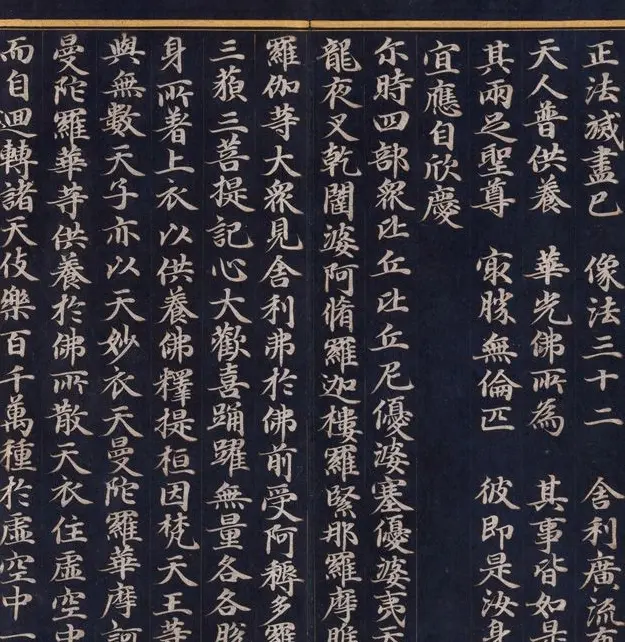 正法滅盡已　像法三十二　舍利廣流
天人普供養　華光佛所為　其事皆如是
其兩足聖尊　㝡勝無倫匹　彼即是汝身
宜應自欣慶
尒時四部衆比丘比丘尼優婆塞優婆夷天
龍夜叉乾闥婆阿脩羅迦樓羅緊那羅摩睺
羅伽等大衆見舍利弗於佛前受阿耨多羅
三藐三菩提記心大歡喜踊躍無量各各脫
身所著上衣以供養佛釋提桓因梵天王等
與無數天子亦以天妙衣天曼陀羅華摩訶
曼陀羅華等供養於佛所散天衣住虛空中
而自迴轉諸天伎樂百千萬種於虛空中一